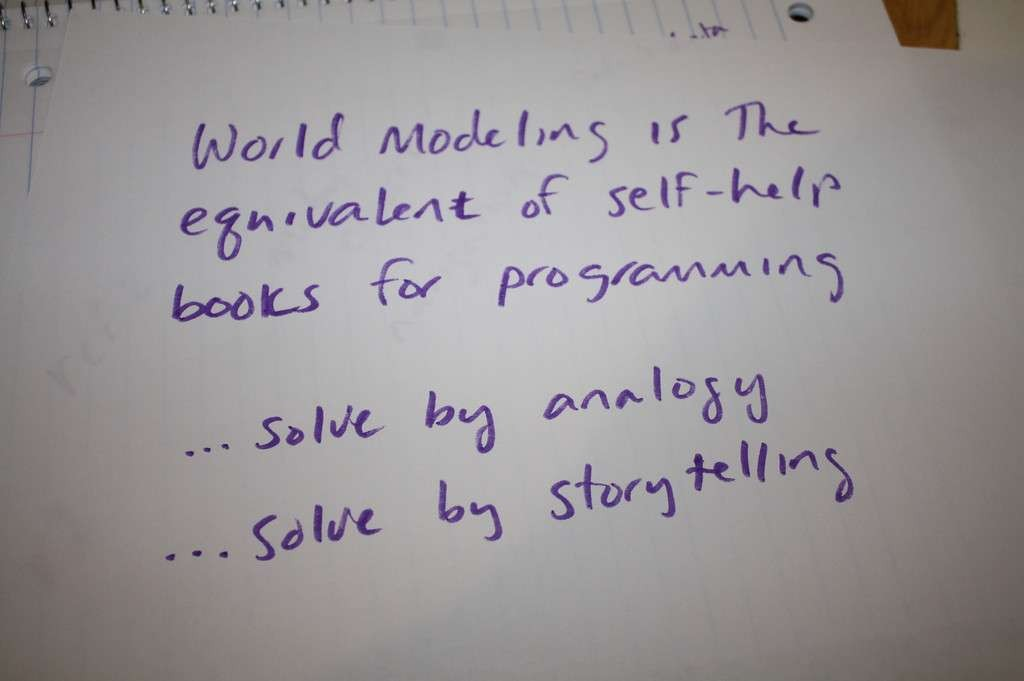 World Modeling is The
equivalent of self-help
books for programming
... solve by analogy
... solve by storytelling